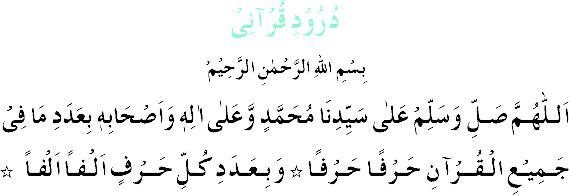 دُرُوْدِ قُرْآنِیْ
بِسْمِ اللهِ الرَّحْمٰنِ الرَّحِيْمِ
اَللّٰهُمَّ صَلِّ وَسَلِّمْ عَلٰى سَيِّدِنَا مُحَمَّدٍ وَّعَلٰى اٰلِهٖ وَاَصْحَابِهٖ بِعَدَدِ مَا فِىْ
جَمِيْعِ الْقُرْآنِ حَرْفًا حَرْفًا ☆ وَبِعَدَدِ كُلِّ حَرْفٍ اَلْفاً اَلْفاً ☆